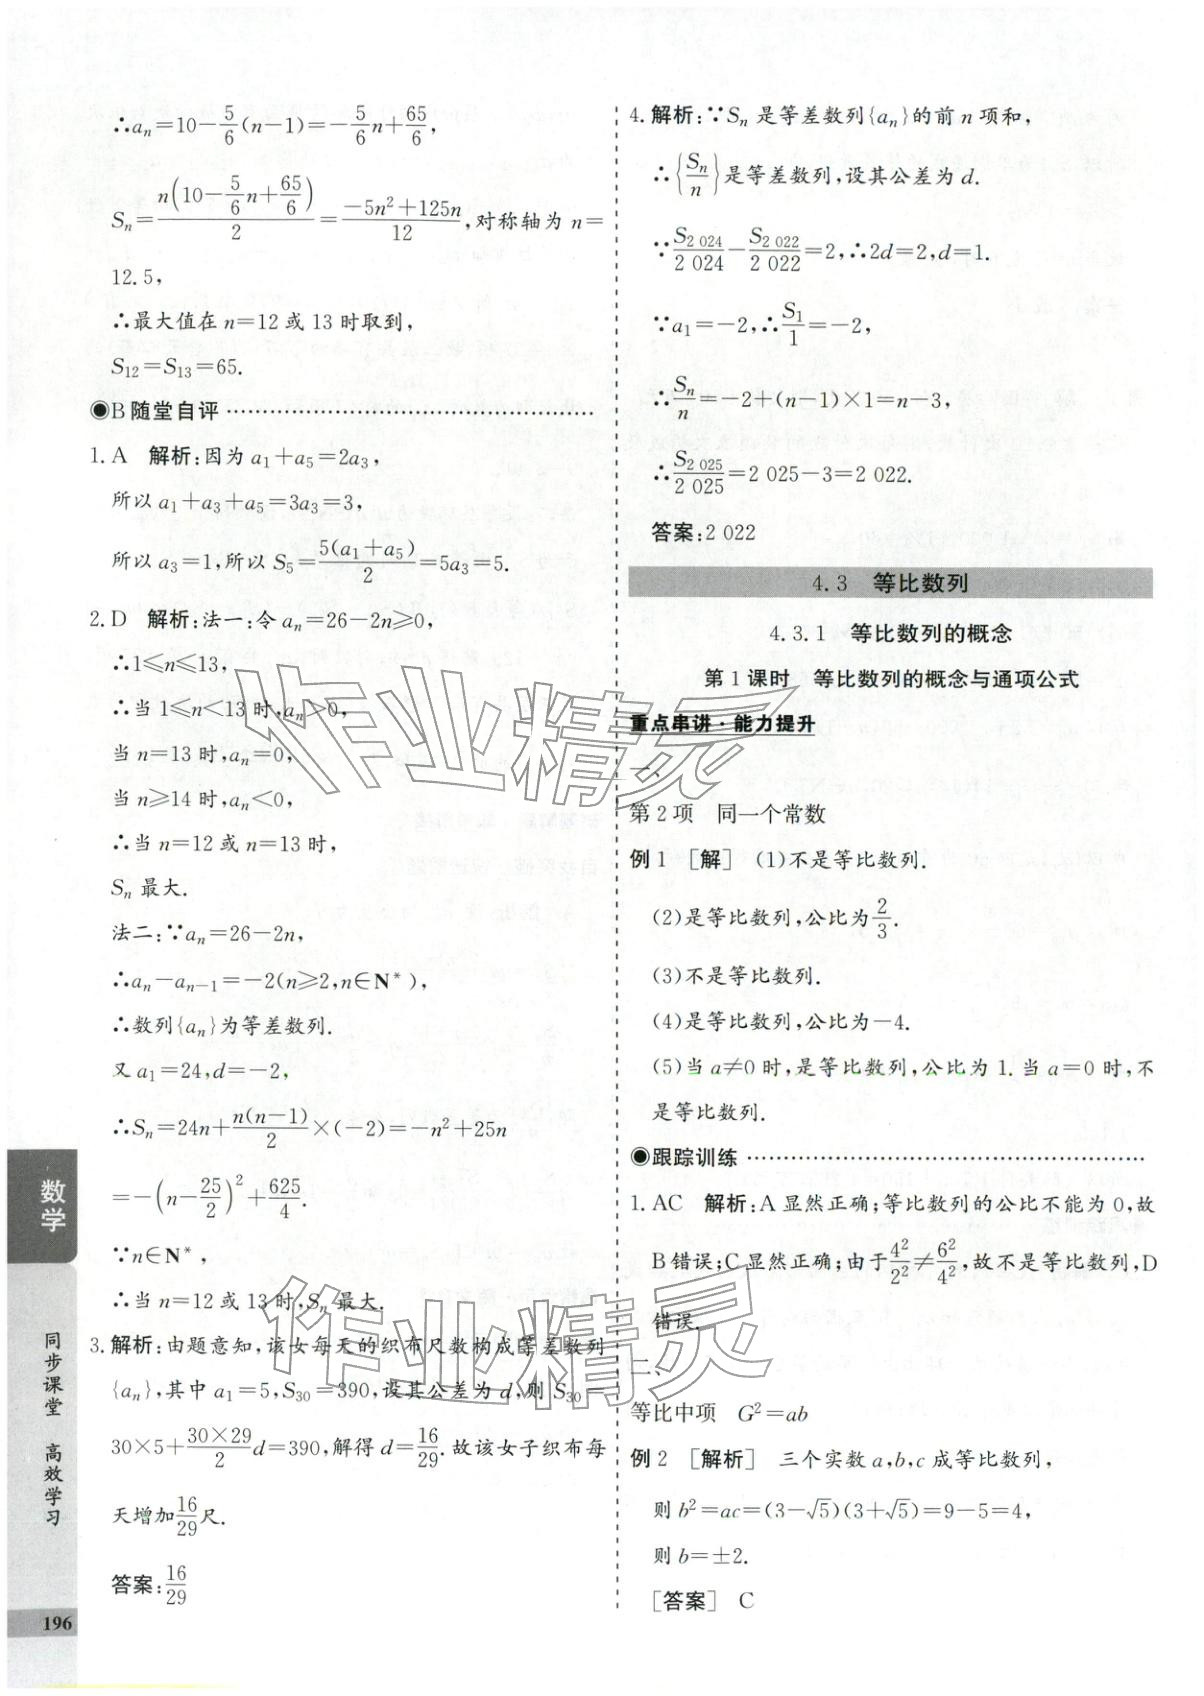 ∴aₙ=10-5/6(n-1)=-5/6n+65/6,
Sₙ=n(10-5/6n+65/6)/2=(-5n²+125n)/12,对称轴为 n=
12.5,
∴最大值在 n=12 或 13 时取到,
S₁₂=S₁₃=65.
◉B 随堂自评
1. A 解析:因为 a₁+a₅=2a₃,
所以 a₁+a₃+a₅=3a₃=3,
所以 a₃=1,所以 S₅=5(a₁+a₅)/2=5a₃=5.
2. D 解析:法一:令 aₙ=26-2n≥0,
∴1≤n≤13,
∴当 1≤n<13 时,aₙ>0,
当 n=13 时,aₙ=0,
当 n≥14 时,aₙ<0,
∴当 n=12 或 n=13 时,
Sₙ 最大.
法二:∵aₙ=26-2n,
∴aₙ-aₙ₋₁=-2(n≥2,n∈N*),
∴数列{aₙ}为等差数列.
又 a₁=24,d=-2,
∴Sₙ=24n+n(n-1)/2×(-2)=-n²+25n
=-(n-25/2)²+625/4.
∵n∈N*,
∴当 n=12 或 13 时,Sₙ 最大.
3. 解析:由题意知,该女每天的织布尺数构成等差数列
{aₙ},其中 a₁=5,S₃₀=390,设其公差为 d,则 S₃₀=
30×5+(30×29)/2d=390,解得 d=16/29.故该女子织布每
天增加16/29尺.
答案:16/29
4. 解析:∵Sₙ 是等差数列{aₙ}的前 n 项和,
∴{Sₙ/n}是等差数列,设其公差为 d.
∵S₂ ₀₂₄/2 024-S₂ ₀₂₂/2 022=2,∴2d=2,d=1.
∵a₁=-2,∴S₁/1=-2,
∴Sₙ/n=-2+(n-1)×1=n-3,
∴S₂ ₀₂₅/2 025=2 025-3=2 022.
答案:2 022
4.3 等比数列
4.3.1 等比数列的概念
第 1 课时 等比数列的概念与通项公式
重点串讲·能力提升
一、
第 2 项 同一个常数
例 1 [解] (1)不是等比数列.
(2)是等比数列,公比为2/3.
(3)不是等比数列.
(4)是等比数列,公比为-4.
(5)当 a≠0 时,是等比数列,公比为 1.当 a=0 时,不
是等比数列.
◉跟踪训练
1. AC 解析:A 显然正确;等比数列的公比不能为 0,故
B 错误;C 显然正确;由于4²/2²≠6²/4²,故不是等比数列,D
错误.
二、
等比中项 G²=ab
例 2 [解析] 三个实数 a,b,c 成等比数列,
则 b²=ac=(3-√5)(3+√5)=9-5=4,
则 b=±2.
[答案] C
数学
同步课堂 高效学习
196
作业精灵
作业精灵